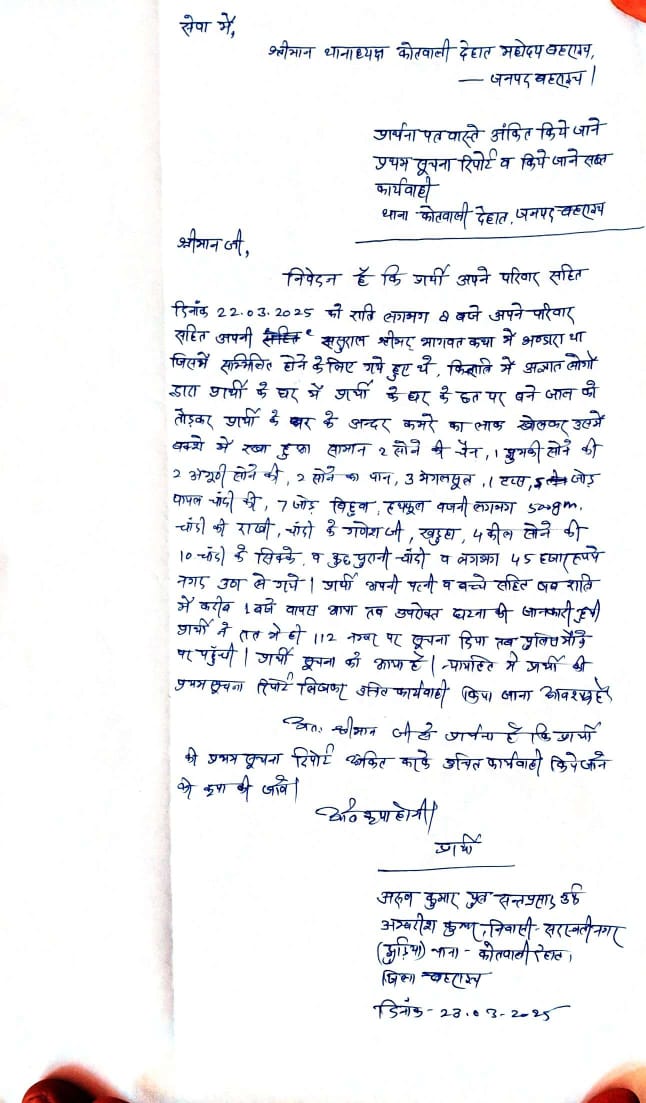 सेवा में,
श्रीमान थानाध्यक्ष कोतवाली देहात महोदय बहराइच,
— जनपद बहराइच।
प्रार्थना पत्र वास्ते अंकित किये जाने
प्रथम सूचना रिपोर्ट व किये जाने सख्त
कार्यवाही
थाना कोतवाली देहात, जनपद बहराइच
श्रीमान जी,
निवेदन है कि प्रार्थी अपने परिवार सहित
दिनांक 22.03.2025 को रात्रि लगभग 8 बजे अपने परिवार
सहित अपनी ससुराल श्रीमद् भागवत कथा में भण्डारा था
जिसमें सम्मिलित होने के लिए गये हुए थे, कि रात्रि में अज्ञात लोगों
द्वारा प्रार्थी के घर में प्रार्थी के घर के छत पर बने जाल को
तोड़कर प्रार्थी के घर के अन्दर कमरे का लाक खोलकर उसमें
बक्से में रखा हुआ सामान 2 सोने की चैन, 1 झुमकी सोने की
2 अंगूठी सोने की, 2 सोने का पान, 3 मंगलसूत्र, 1 टप्स, जोड़
पायल चांदी की, 7 जोड़ बिछुवा, हथफूल वजनी लगभग 500gm.
चांदी की राखी, चांदी के गणेश जी, खडुहा, 4 कील सोने की
10 चांदी के सिक्के, व कुछ पुरानी चांदी व लगभग 45 हजार रूपये
नगद उठा ले गये। प्रार्थी अपनी पत्नी व बच्चे सहित जब रात्रि
में करीब 1 बजे वापस आया तब उपरोक्त घटना की जानकारी हुयी
प्रार्थी ने रात में ही 112 नम्बर पर सूचना दिया तब पुलिस मौके
पर पहुँची। प्रार्थी सूचना को आया है। न्यायहित में प्रार्थी की
प्रथम सूचना रिपोर्ट लिखकर उचित कार्यवाही किया जाना आवश्यक है
अतः श्रीमान जी से प्रार्थना है कि प्रार्थी
की प्रथम सूचना रिपोर्ट अंकित करके उचित कार्यवाही किये जाने
की कृपा की जावे।
अति कृपा होगी।
प्रार्थी
कुमार पुत्र सन्तप्रसाद उर्फ
अम्बरीश कुमार, निवासी- सरस्वतीनगर
(गुड़िया) थाना - कोतवाली देहात,
जिला बहराइच
दिनांक - 23.03-2025